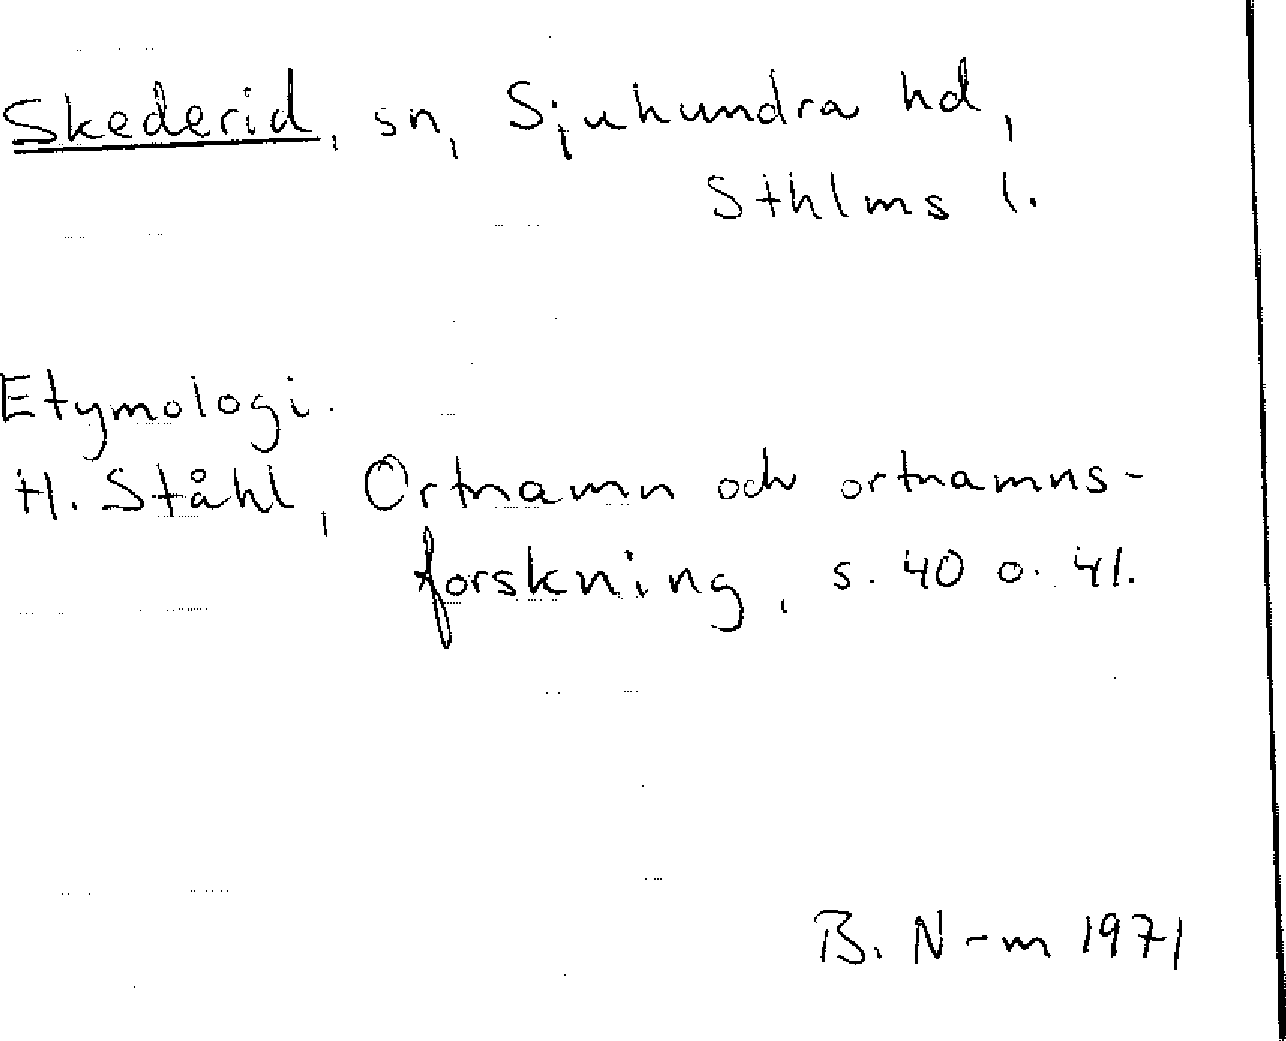 Skederid, sn, Sjuhundra hd,
Sthlms l.
Etymologi.
H. Ståhl, Ortnamn och ortnamns-
forskning, s. 40 o. 41.
B. N-m 1971